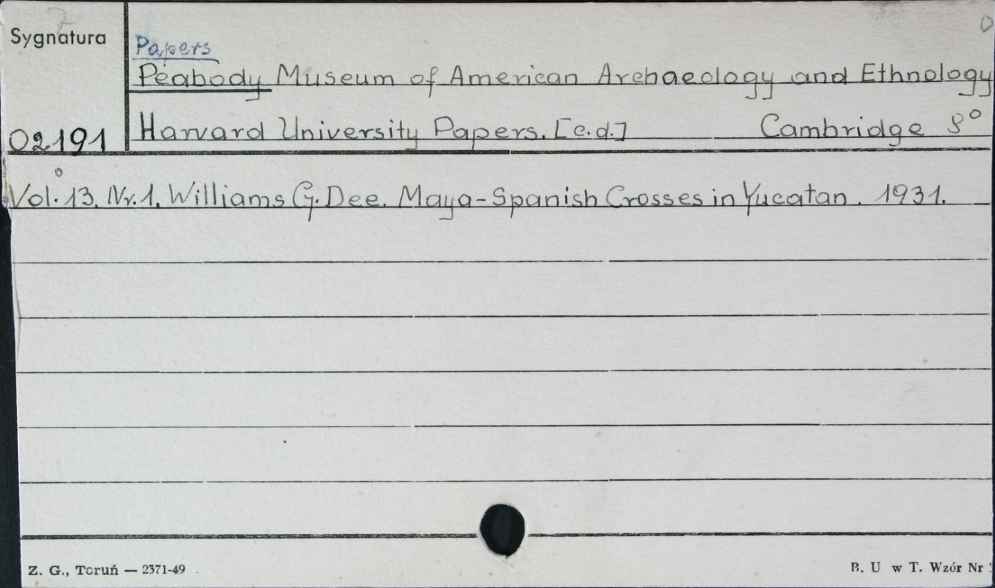 Sygnatura
Papers
Peabody Museum of American Archaeology and Ethnology
02191 Harvard University Papers. [c.d.] Cambridge 8°
Vol. 13. Nr. 1. Williams G. Dee. Maya-Spanish Crosses in Yucatan. 1931.
Z. G., Toruń — 2371-49
B. U w T. Wzór Nr